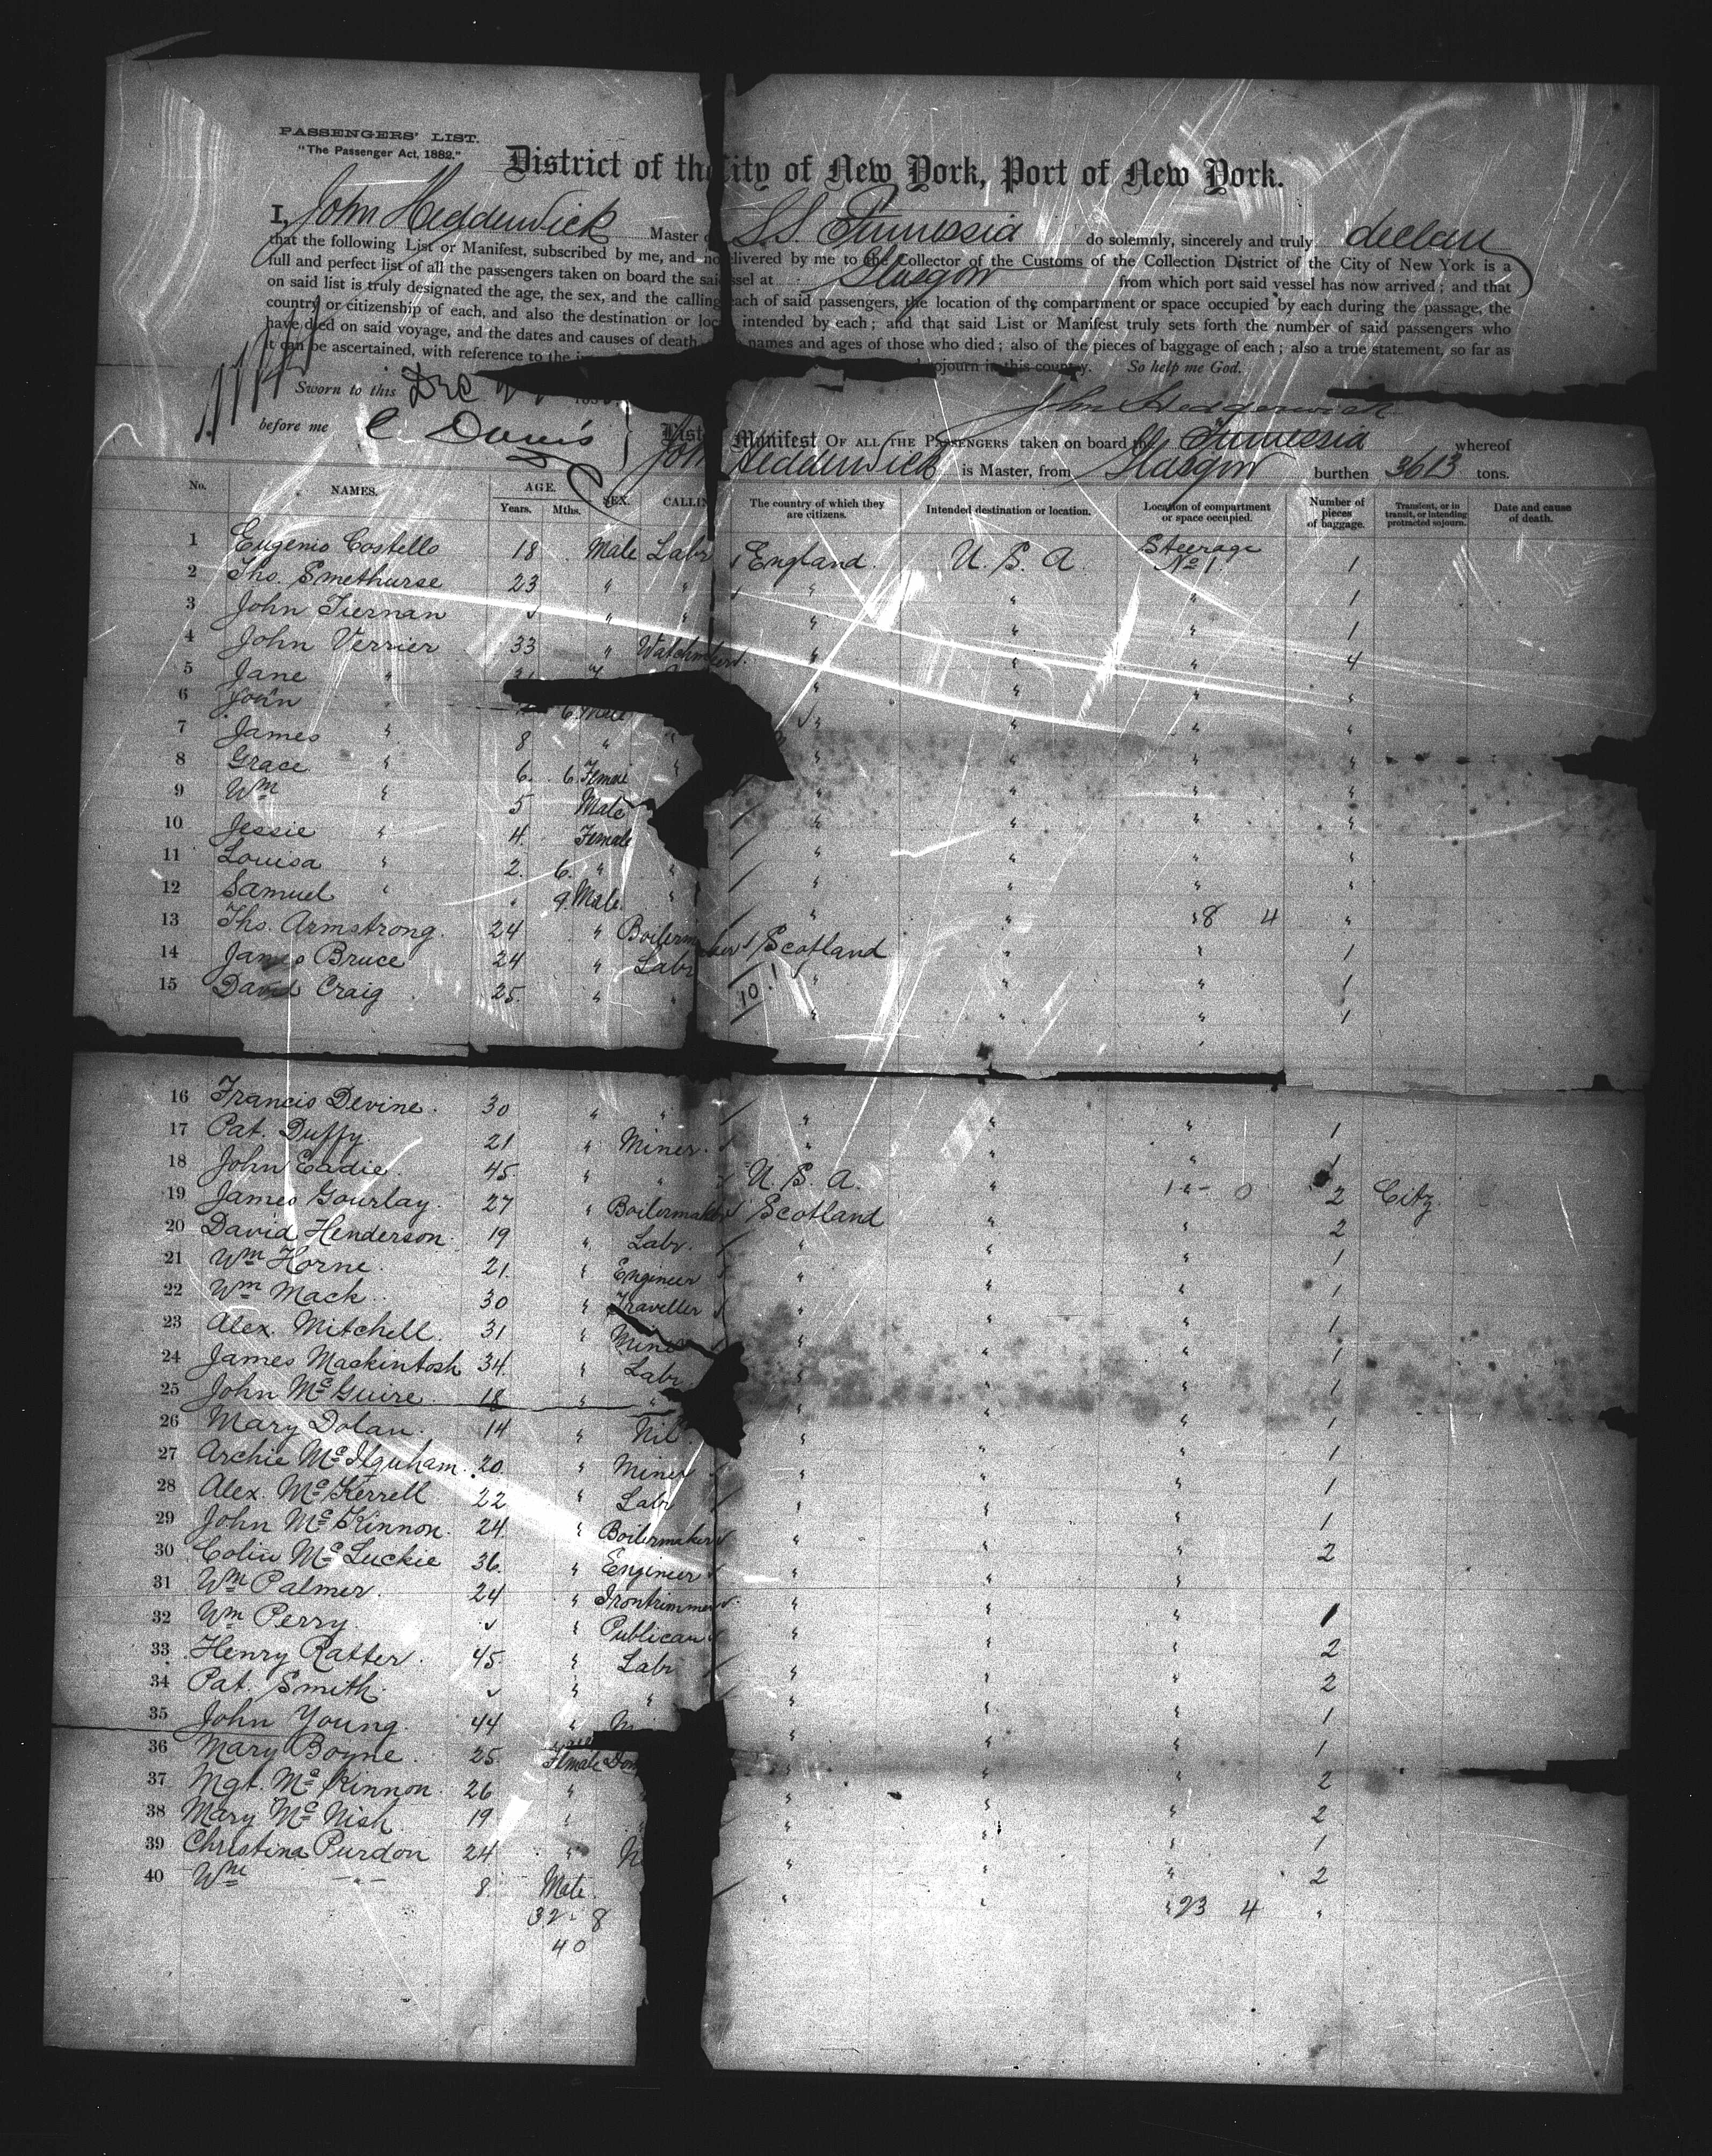 PASSENGERS' LIST.
"The Passenger Act, 1882."
District of the City of New York, Port of New York.
I, John Hedderwick Master S.S. Furnessia do solemnly, sincerely and truly declare
that the following List or Manifest, subscribed by me, and no delivered by me to the Collector of the Customs of the Collection District of the City of New York is a
full and perfect list of all the passengers taken on board the said ssel at Glasgow from which port said vessel has now arrived; and that
on said list is truly designated the age, the sex, and the calling each of said passengers, the location of the compartment or space occupied by each during the passage, the
country or citizenship of each, and also the destination or loc intended by each; and that said List or Manifest truly sets forth the number of said passengers who
have died on said voyage, and the dates and causes of death names and ages of those who died; also of the pieces of baggage of each; also a true statement, so far as
it can be ascertained, with reference to the sojourn in this country. So help me God.
Sworn to this Dec
John Hedderwick
before me C. Davis
List Manifest OF ALL THE PASSENGERS taken on board the Furnessia whereof
John Hedderwick is Master, from Glasgow burthen 3613 tons.
No. NAMES. AGE. Years. Mths. SEX. CALLIN The country of which they are citizens. Intended destination or location. Location of compartment or space occupied. Number of pieces of baggage. Transient, or in transit, or intending protracted sojourn. Date and cause of death.
1 Eugenio Costello 18 Male Labr England. U. S. A. Steerage No 1. 1
2 Tho. Smethurse 23 " " " " " 1
3 John Tiernan " " " " " 1
4 John Verrier 33 " " " " 4
5 Jane " " " " "
6 John " 6 Male " " " "
7 James " 8 " " " " " "
8 Grace " 6. 6 Female " " " " "
9 Wm " 5 Male " " " "
10 Jessie " 4. Female " " " "
11 Louisa " 2. 6. " " " " " "
12 Samuel " " 9. Male " " " 8 4 "
13 Tho. Armstrong. 24 " Boilermaker Scotland " " 1
14 James Bruce 24 " Labr " " " 1
15 David Craig 25. " " 10 " " " 1
16 Francis Devine. 30 " " " " " 1
17 Pat. Duffy. 21 " Miner. " " " 1
18 John Eadie. 45. " " U. S. A. " 2 Citz.
19 James Gourlay. 27 " Boilermaker Scotland " " 2
20 David Henderson. 19 " Labr " " " 1
21 Wm Horne. 21. " Engineer " " " 1
22 Wm Mack. 30 " Traveller " " " 1
23 Alex. Mitchell. 31 " Miner " " " 1
24 James Mackintosh 34. " Labr " " " 1
25 John McGuire. 18 " " " " " 1
26 Mary Dolan. 14 " Nil " " " 1
27 Archie McIlquham. 20. " Miner " " " 1
28 Alex. McKerrell 22 " Labr " " " 1
29 John McKinnon. 24. " Boilermaker " " " 2
30 Colin McLuckie 36. " Engineer " " "
31 Wm Palmer. 24 " Irontrimmer " " " 1
32 Wm Perry. " Publican " " " 2
33 Henry Ratter. 45. " Labr " " " 2
34 Pat. Smith. " " " " " 1
35 John Young. 44 " " " " 1
36 Mary Boyne. 25 Female Dom " " " 2
37 Mgt. McKinnon. 26 " " " " 2
38 Mary McNish. 19 " " " " 1
39 Christina Purdon 24 " " " " 2
40 Wm —"— 8. Male. " " 23 4 "
32 - 8
40